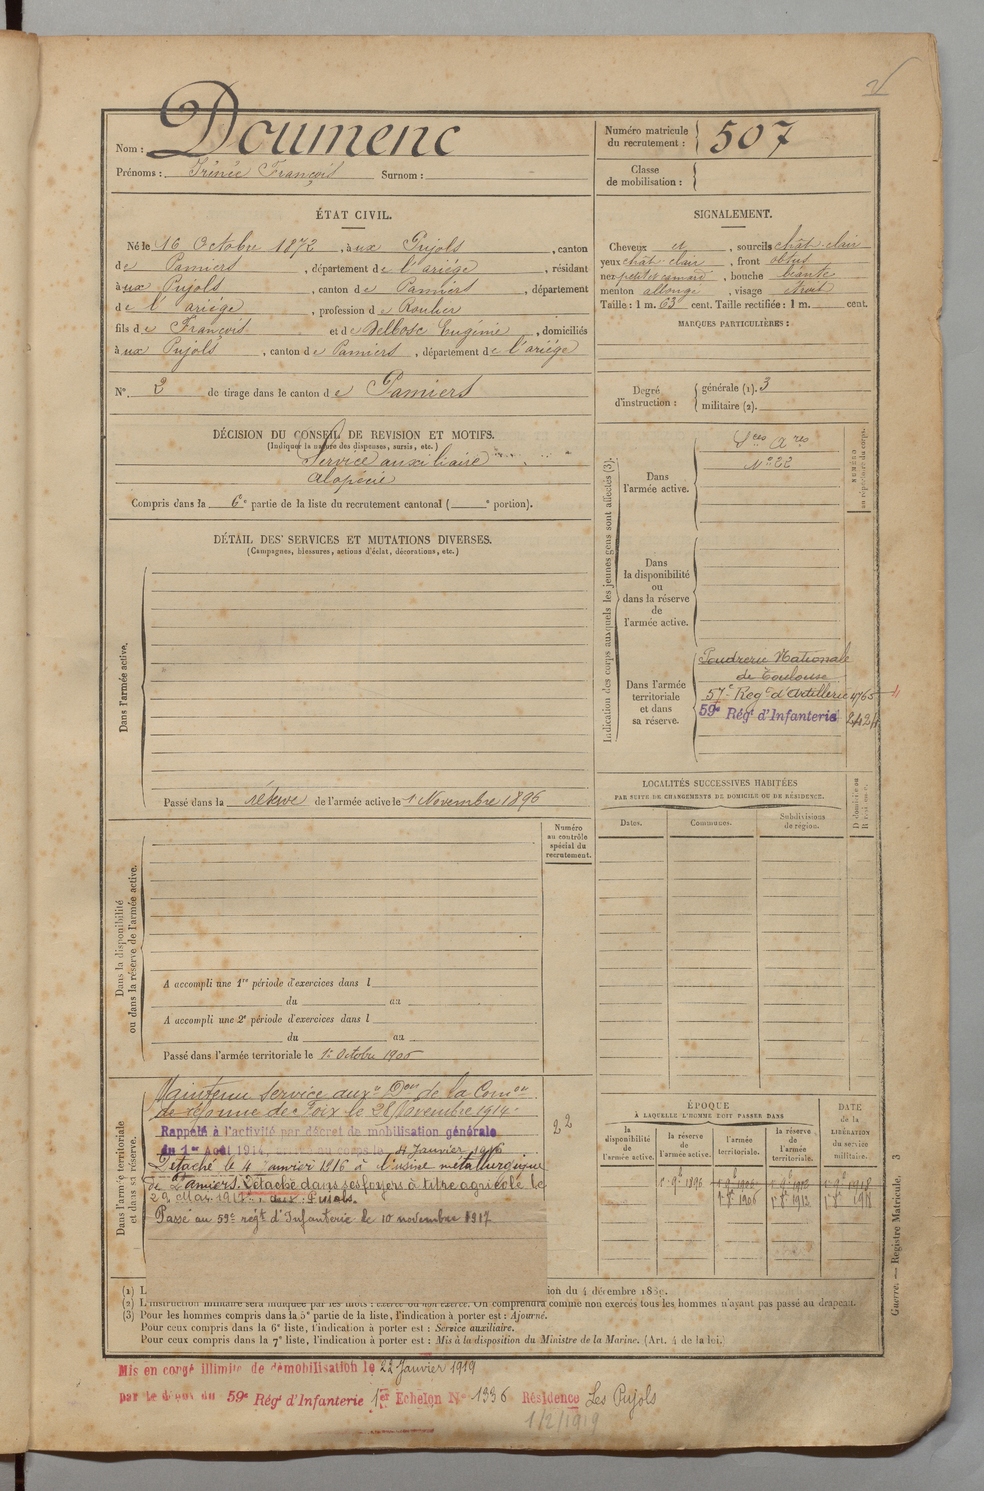 Nom : Doumenc
Prénoms : Irénée François Surnom :
Numéro matricule du recrutement : 507
Classe de mobilisation :
ÉTAT CIVIL.
Né le 16 Octobre 1872, à ux Pujols, canton
de Pamiers, département de l'ariége, résidant
à ux Pujols, canton de Pamiers, département
de l'ariége, profession de Roulier
fils de François et de Delbosc Eugénie, domiciliés
à ux Pujols, canton de Pamiers, département de l'ariége
N° 2 de tirage dans le canton de Pamiers
SIGNALEMENT.
Cheveux et, sourcils chât-clair
yeux chât-clair, front obtus
nez petit et camard, bouche béante
menton allongé, visage étroit
Taille : 1 m. 63 cent. Taille rectifiée : 1 m. cent.
MARQUES PARTICULIÈRES :
Degré d'instruction : générale (1). 3
militaire (2).
DÉCISION DU CONSEIL DE REVISION ET MOTIFS.
(Indiquer la nature des dispenses, sursis, etc.)
Service auxiliaire
alopécie
Compris dans la 6e partie de la liste du recrutement cantonal ( e portion).
DÉTAIL DES SERVICES ET MUTATIONS DIVERSES.
(Campagnes, blessures, actions d'éclat, décorations, etc.)
Dans l'armée active.
Passé dans la réserve de l'armée active le 1 Novembre 1896
Indication des corps auxquels les jeunes gens sont affectés (3).
NUMÉRO au répertoire du corps.
Dans l'armée active.
Sces Ares
N° 22
Dans la disponibilité ou dans la réserve de l'armée active.
Dans l'armée territoriale et dans sa réserve.
Poudrerie Nationale
de Toulouse
57e Regt d'Artillerie 4765
59e Régt d'Infanterie 2424
LOCALITÉS SUCCESSIVES HABITÉES
PAR SUITE DE CHANGEMENTS DE DOMICILE OU DE RÉSIDENCE.
Dates. Communes. Subdivisions de région.
Numéro au contrôle spécial du recrutement.
Dans la disponibilité ou dans la réserve de l'armée active.
A accompli une 1re période d'exercices dans l
du au
A accompli une 2e période d'exercices dans l
du au
Passé dans l'armée territoriale le 1er Octobre 1906
Dans l'armée territoriale et dans sa réserve.
Maintenu service auxre Don de la Comon
de réforme de Foix le 28 Novembre 1914
22
Rappelé à l'activité par décret de mobilisation générale
du 1er Août 1914, au corps le 4 Janvier 1916
Détaché le 4 Janvier 1916 à l'usine métallurgique
de Pamiers. Détaché dans ses foyers à titre agricole le
29 Mai 1917, aux Pujols.
Passé au 59e régt d'Infanterie le 10 novembre 1917
ÉPOQUE
À LAQUELLE L'HOMME DOIT PASSER DANS
la disponibilité de l'armée active. la réserve de l'armée active. l'armée territoriale. la réserve de l'armée territoriale.
DATE de la LIBÉRATION du service militaire.
1896 1906 1912 1918
1906 1912 1918
(1) L ion du 4 décembre 1889.
(2) L'instruction militaire sera indiquée par les mots : exercé ou non exercé. On comprendra comme non exercés tous les hommes n'ayant pas passé au drapeau.
(3) Pour les hommes compris dans la 5e partie de la liste, l'indication à porter est : Ajourné.
Pour ceux compris dans la 6e liste, l'indication à porter est : Service auxiliaire.
Pour ceux compris dans la 7e liste, l'indication à porter est : Mis à la disposition du Ministre de la Marine. (Art. 4 de la loi.)
Guerre. — Registre Matricule. 3
Mis en congé illimité de démobilisation le 22 Janvier 1919
par le dépôt du 59e Régt d'Infanterie 1er Echelon N° 1336 Résidence Les Pujols
1/2/1919